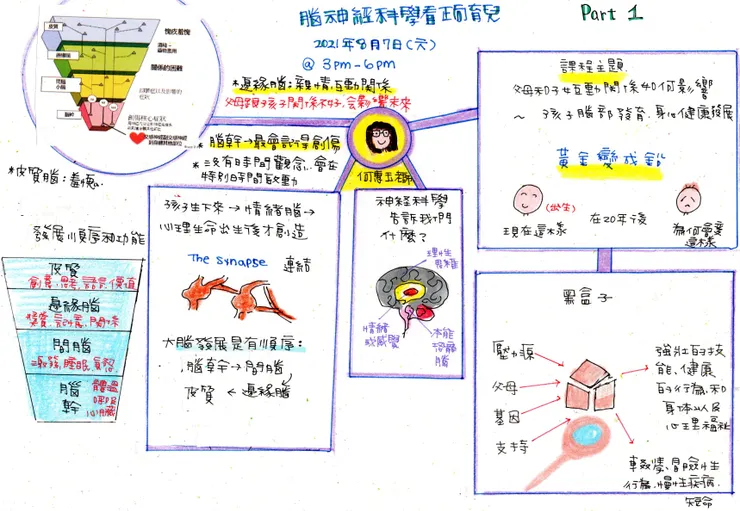 腦神經科學看正向育兒
Part 1
2021年8月7日(六)
@ 3pm-6pm
皮質
邊緣腦
間腦
小腦
腦幹
愧疚羞愧
關係的困難
創傷核心症狀
*邊緣腦:離情,互動關係
父母跟孩子關係不好,會影響未來
*腦幹→最會記得創傷
*沒有時間觀念,會在
特別時間啟動
何惠玉老師
皮質腦:羞愧
課程主題
父母和子女互動關係如何影響
~ 孩子腦部發育、身心健康發展
黃金變成鉛
(出生)
現在這樣
在20年後
為何會變
這樣
孩子生下來→情緒腦→
心理生命出生後才創造
The synapse 連結
大腦發展是有順序:
腦幹→間腦
皮質←邊緣腦
神經科學
告訴我們
什麼?
理性
思維
情緒
或感覺
本能
恐龍
腦
發展順序和功能
皮質
創意、思考、語言、價值
邊緣腦
獎賞、記憶、關係
間腦
飢餓、睡眠
腦
幹
體溫
呼吸
心臟
黑盒子
壓力源
父母
基因
支持
強壯的技
能、健康
的行為,和
身体以及
心理福祉
輟學、冒險性
行為、慢性疾病、
短命